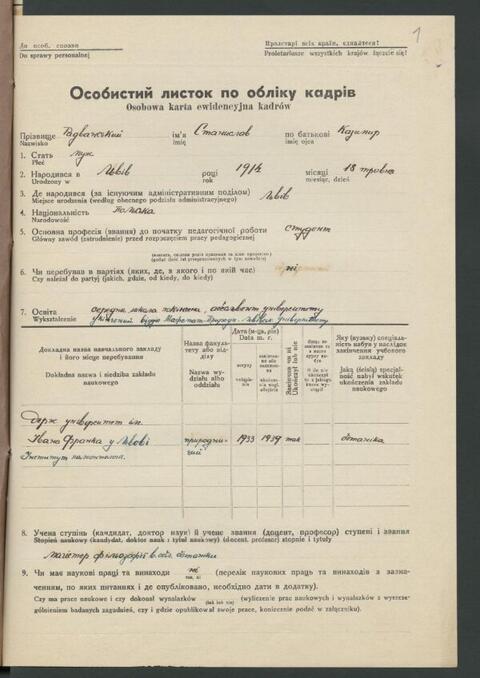 1
До особ. справи
Do sprawy personalnej
Пролетарі всіх країн, єднайтеся!
Proletariusze wszystkich krajów łączcie się!
Особистий листок по обліку кадрів
Osobowa karta ewidencyjna kadrów
Прізвище ім'я Станислав по батькові Казимир
Nazwisko imię imię ojca
1. Стать муж
Płeć
2. Народився в Львів році 1914 місяці 18 травня
Urodzony w rok miesiąc, dzień
3. Де народився (за існуючим адміністративним поділом) Львів
Miejsce urodzenia (według obecnego podziału administracyjnego)
4. Національність
Narodowość
5. Основна професія (звання) до початку педагогічної роботи студент
Główny zawód (zatrudnienie) przed rozpoczęciem pracy pedagogicznej
6. Чи перебував в партіях (яких, де, з якого і по якій час) ні
Czy należał do partyj (jakich, gdzie, od kiedy, do kiedy)
7. Освіта середня школа закінчена, абсольвент університету
Wykształcenie
Докладна назва навчального закладу і його місце перебування
Dokładna nazwa i siedziba zakładu naukowego
Назва факультету або відділу
Nazwa wydziału albo oddziału
Дата (м-ць, рік)
Data m. r.
Закінчив чи ні
Ukończył lub nie
Яку (вузьку) спеціальність набув у наслідок закінчення учбового закладу
Jaką (ścisłą) specjalność nabył wskutek ukończenia zakładu naukowego
Держ університет ім.
Івана Франка у Львові природничий 1933 1939 так ботаніка
8. Учена ступінь (кандидат, доктор наук) й учене звання (доцент, професор) ступені і звання
Stopień naukowy (kandydat, doktor nauk i tytuł naukowy) (docent, profesor) stopnie i tytuły
магістер філософії в обл. ботаніки
9. Чи має наукові праці та винаходи ні (перелік наукових праць та винаходів з зазначенням, по яких питаннях і де опубліковано, необхідно дати в додатку).
так, ні
Czy ma prace naukowe i czy dokonał wynalazków (tak lub nie) (wyliczenie prac naukowych i wynalazków z wyszczególnieniem badanych zagadnień, czy i gdzie opublikował swoje prace, koniecznie podać w załączniku).